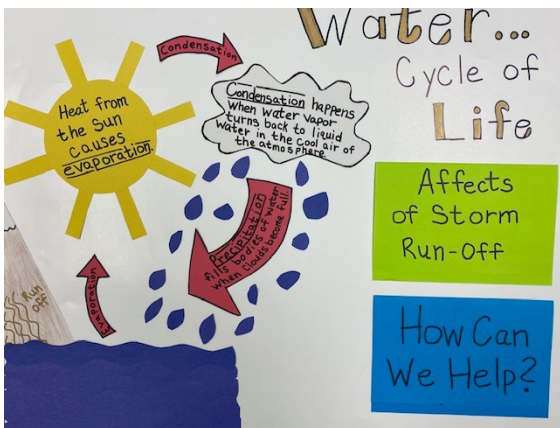 Water...
Cycle of
Life
Condensation
Heat from
the Sun
causes
evaporation.
Condensation happens
when water vapor
turns back to liquid
water in the cool air of
the atmosphere.
Precipitation
fills bodies of water
when clouds become full.
Evaporation
Run
off
Affects
of Storm
Run-Off
How Can
We Help?